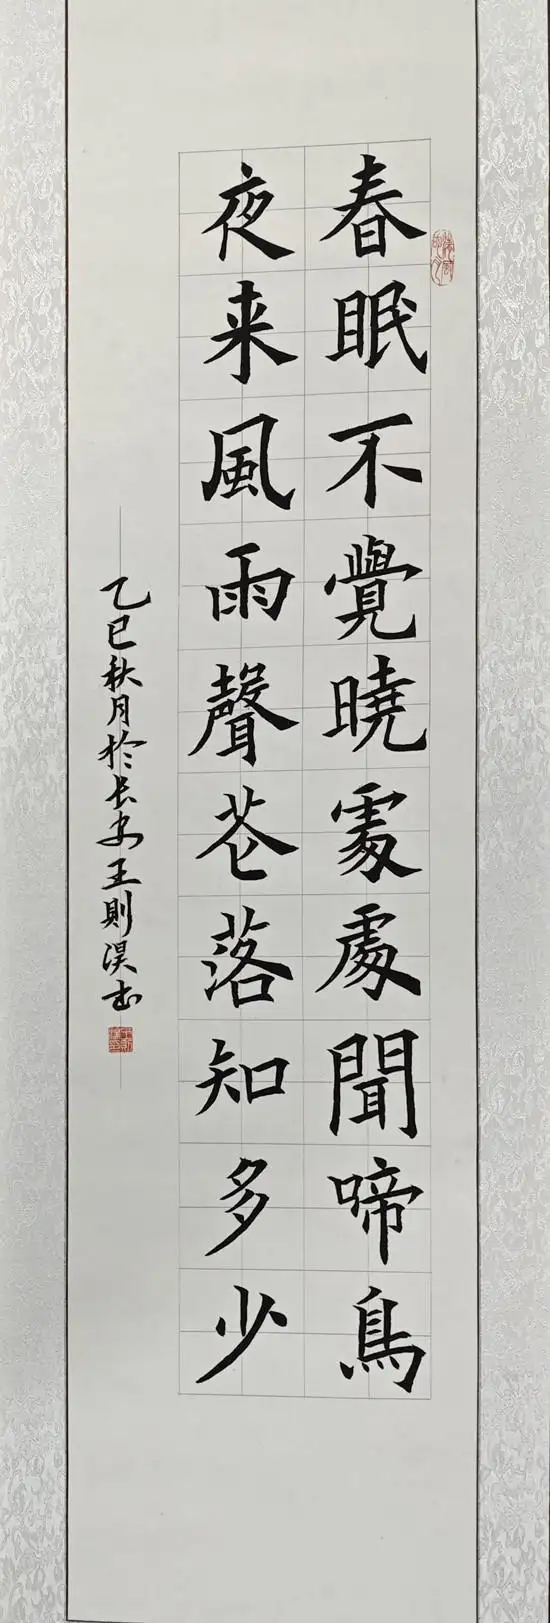 春眠不覺曉處處聞啼鳥
夜来風雨聲花落知多少
乙巳秋月於长安王則淏书